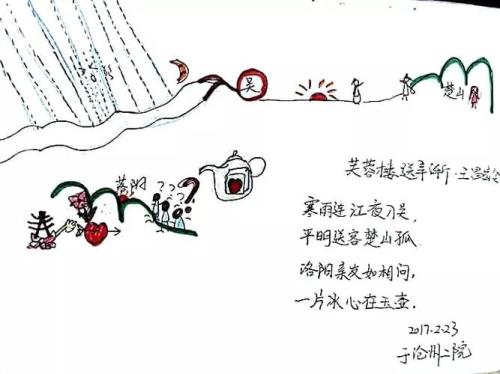 吴
楚山
洛阳
芙蓉楼送辛渐·王昌龄
寒雨连江夜入吴,
平明送客楚山孤.
洛阳亲友如相问,
一片冰心在玉壶.
2017.2.23
于沧州二院